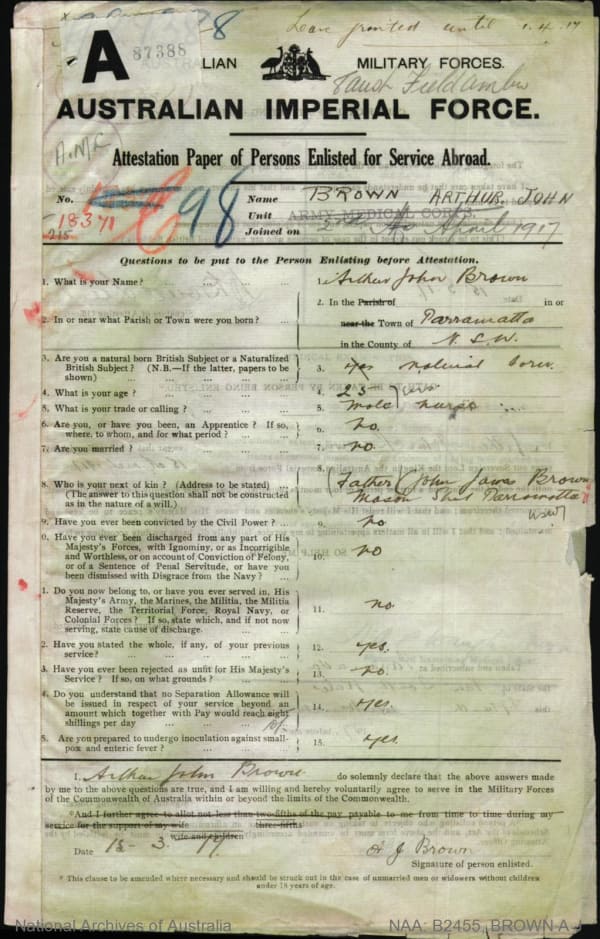 x
A
87388
8
Leave granted until 1.4.17
LIAN MILITARY FORCES.
AUSTRALIAN IMPERIAL FORCE.
A.M.C
Attestation Paper of Persons Enlisted for Service Abroad.
No. 18371 C98
Name BROWN ARTHUR JOHN
Unit ARMY MEDICAL CORPS.
Joined on April 1917
Questions to be put to the Person Enlisting before Attestation.
1. What is your Name? ... ... ... 1. Arthur John Brown
2. In or near what Parish or Town were you born? ... 2. In the Parish of in or
near the Town of Parramatta
in the County of N.S.W.
3. Are you a natural born British Subject or a Naturalized
British Subject? (N.B.—If the latter, papers to be
shown) ... ... ... 3. yes natural born.
4. What is your age? ... ... ... 4. 23
5. What is your trade or calling? ... ... ... 5. male nurse
6. Are you, or have you been, an Apprentice? If so,
where, to whom, and for what period? ... ... 6. no.
7. Are you married? ... ... ... 7. no.
8. Who is your next of kin? (Address to be stated) ...
(The answer to this question shall not be constructed
as in the nature of a will.) 8. (Father) (John James Brown
Mason Parramatta
NSW
9. Have you ever been convicted by the Civil Power? ... 9. no
0. Have you ever been discharged from any part of His
Majesty's Forces, with Ignominy, or as Incorrigible
and Worthless, or on account of Conviction of Felony,
or of a Sentence of Penal Servitude, or have you
been dismissed with Disgrace from the Navy? ... 10. no
1. Do you now belong to, or have you ever served in, His
Majesty's Army, the Marines, the Militia, the Militia
Reserve, the Territorial Force, Royal Navy, or
Colonial Forces? If so, state which, and if not now
serving, state cause of discharge. 11. no.
2. Have you stated the whole, if any, of your previous
service? ... ... ... 12. yes.
3. Have you ever been rejected as unfit for His Majesty's
Service? If so, on what grounds? ... 13. no.
4. Do you understand that no Separation Allowance will
be issued in respect of your service beyond an
amount which together with Pay would reach eight
shillings per day ... ... 14. yes.
5. Are you prepared to undergo inoculation against small-
pox and enteric fever? ... ... 15. yes.
I, Arthur John Brown do solemnly declare that the above answers made
by me to the above questions are true, and I am willing and hereby voluntarily agree to serve in the Military Forces
of the Commonwealth of Australia within or beyond the limits of the Commonwealth.
*And I further agree to allot not less than two-fifths of the pay payable to me from time to time during my
three-fifths
service for the support of my wife
wife and children
Date 13 - 3 . 17. A J Brown
Signature of person enlisted.
* This clause to be amended where necessary and should be struck out in the case of unmarried men or widowers without children
under 18 years of age.
National Archives of Australia NAA: B2455, BROWN A J